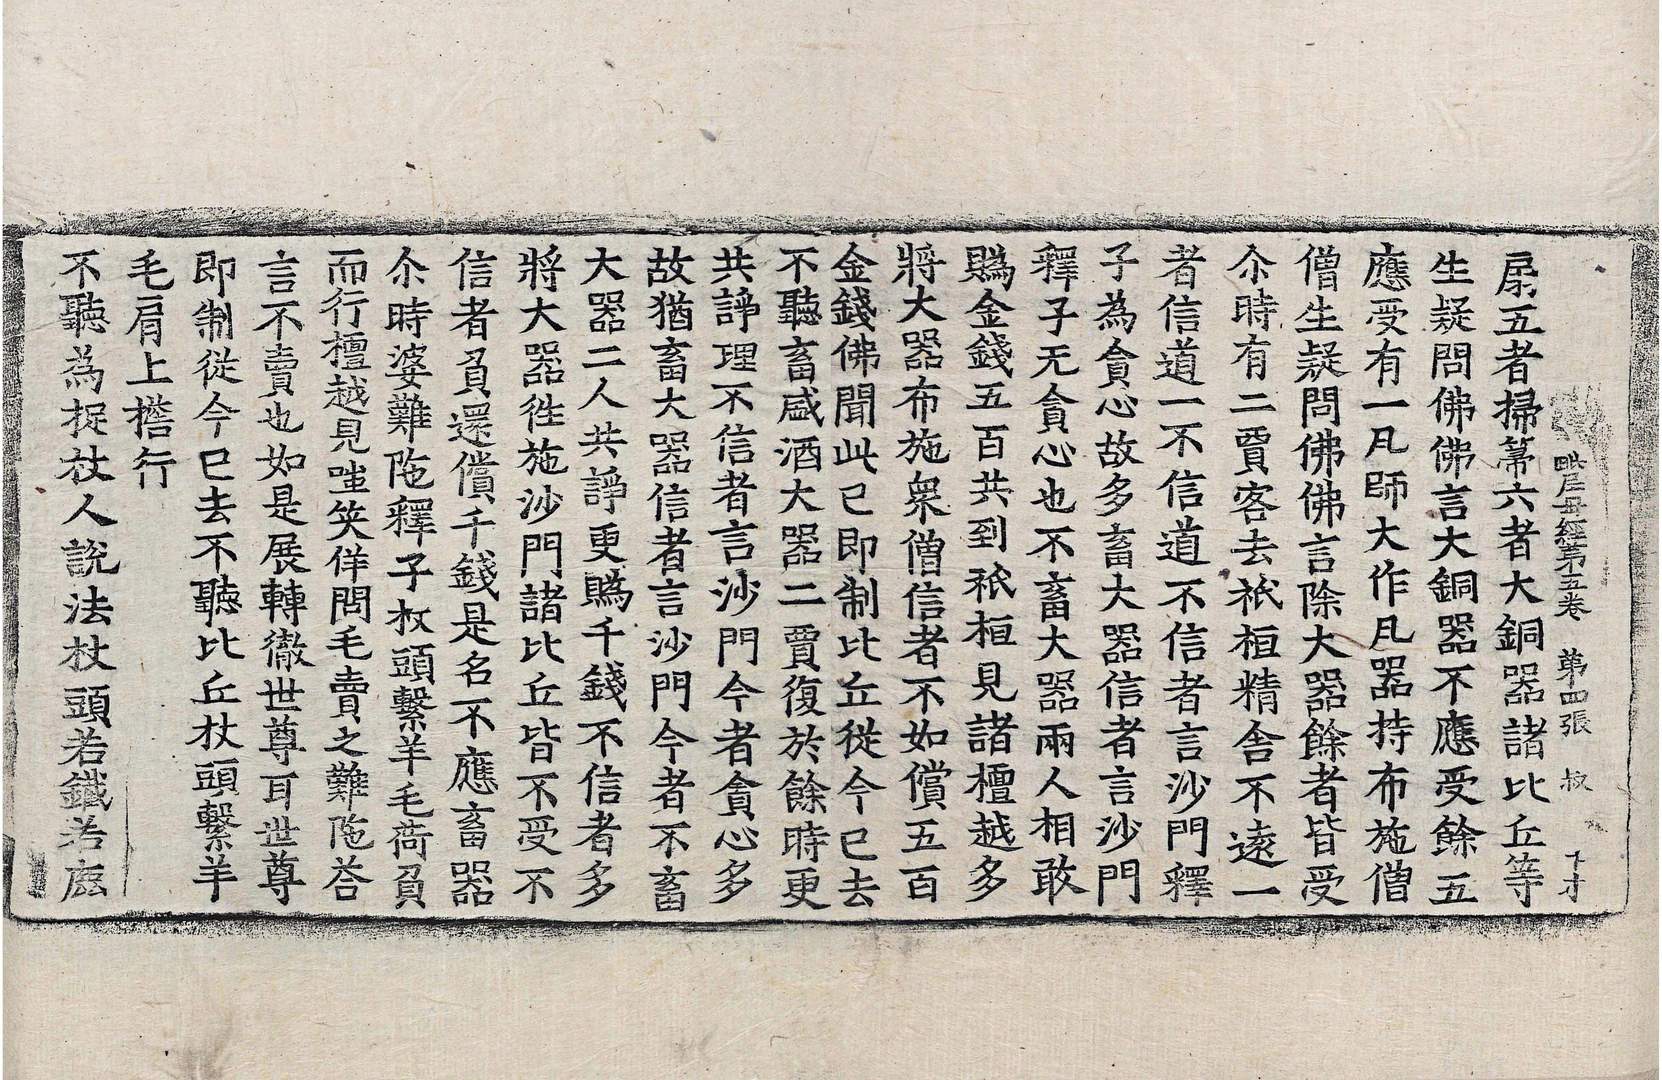 毗尼母經第五卷 第四張 叔
扇五者掃箒六者大銅器諸比丘等
生疑問佛佛言大銅器不應受餘五
應受有一凡師大作凡器持布施僧
僧生疑問佛佛言除大器餘者皆受
尒時有二賈客去祇桓精舍不遠一
者信道一不信道不信者言沙門釋
子為貪心故多畜大器信者言沙門
釋子无貪心也不畜大器兩人相敢
賭金錢五百共到祇桓見諸檀越多
將大器布施衆僧信者不如償五百
金錢佛聞此已即制比丘從今已去
不聽畜盛酒大器二賈復於餘時更
共諍理不信者言沙門今者貪心多
故猶畜大器信者言沙門今者不畜
大器二人共諍更賭千錢不信者多
將大器徃施沙門諸比丘皆不受不
信者負還償千錢是名不應畜器
尒時婆難陁釋子杖頭繫羊毛荷負
而行檀越見嗤笑佯問毛賣之難陁荅
言不賣也如是展轉徹世尊耳世尊
即制從今已去不聽比丘杖頭繫羊
毛肩上擔行
不聽為捉杖人說法杖頭若鐵若鹿